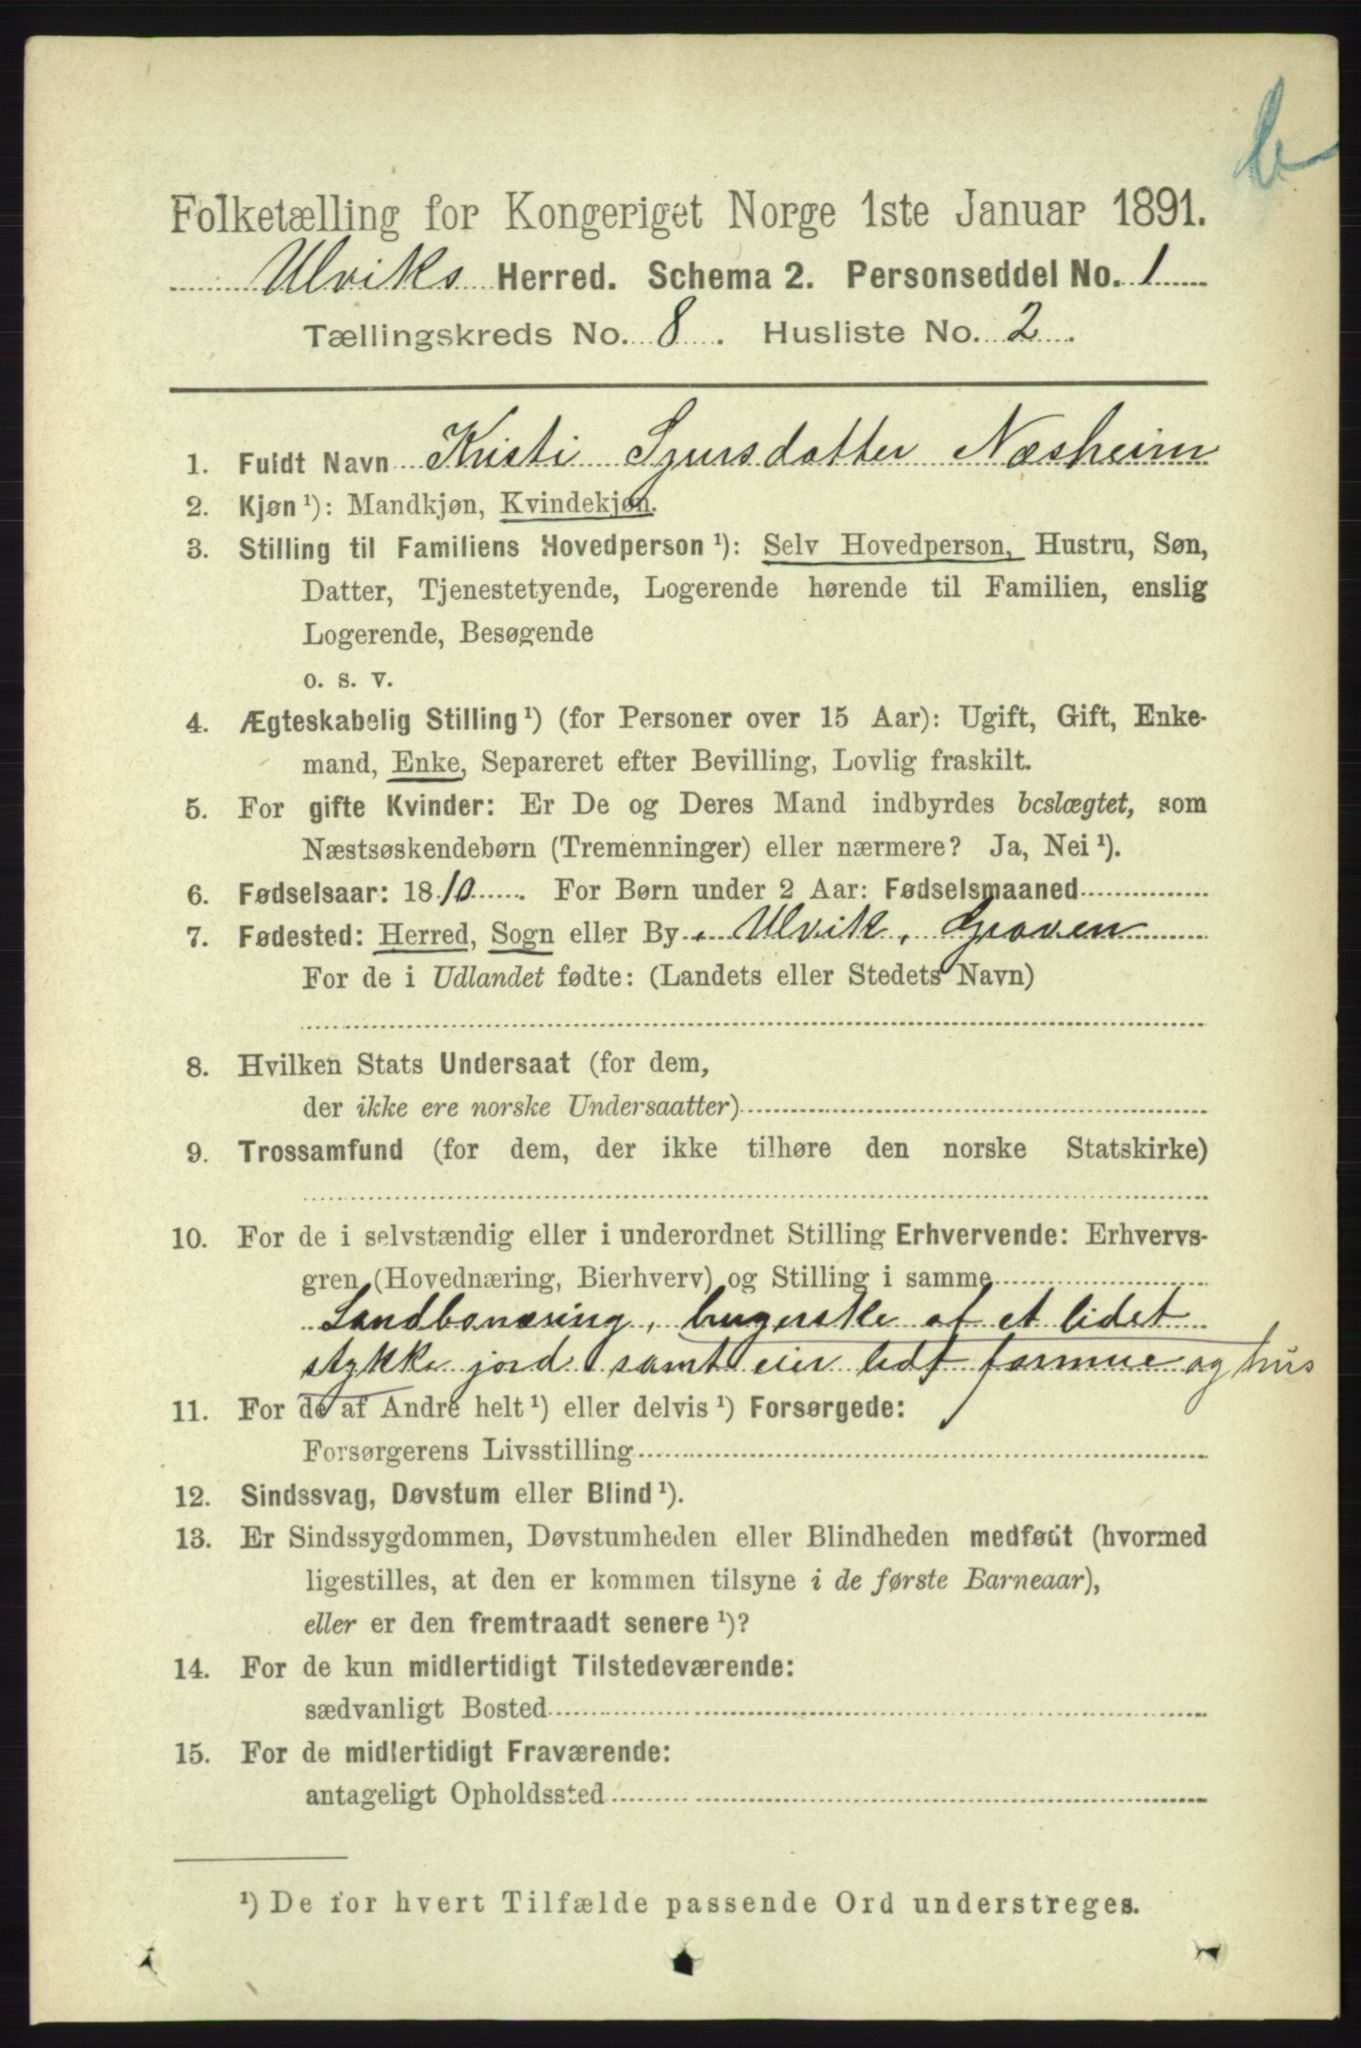 b
Folketælling for Kongeriget Norge 1ste Januar 1891.
Ulviks Herred. Schema 2. Personseddel No. 1
Tællingskreds No. 8. Husliste No. 2.
1. Fuldt Navn Kristi Sjursdatter Næsheim
2. Kjøn¹): Mandkjøn, Kvindekjøn.
3. Stilling til Familiens Hovedperson¹): Selv Hovedperson, Hustru, Søn,
Datter, Tjenestetyende, Logerende hørende til Familien, enslig
Logerende, Besøgende
o. s. v.
4. Ægteskabelig Stilling¹) (for Personer over 15 Aar): Ugift, Gift, Enke-
mand, Enke, Separeret efter Bevilling, Lovlig fraskilt.
5. For gifte Kvinder: Er De og Deres Mand indbyrdes beslægtet, som
Næstsøskendebørn (Tremenninger) eller nærmere? Ja, Nei¹).
6. Fødselsaar: 1810. For Børn under 2 Aar: Fødselsmaaned
7. Fødested: Herred, Sogn eller By, Ulvik, Graven
For de i Udlandet fødte: (Landets eller Stedets Navn)
8. Hvilken Stats Undersaat (for dem,
der ikke ere norske Undersaatter)
9. Trossamfund (for dem, der ikke tilhøre den norske Statskirke)
10. For de i selvstændig eller i underordnet Stilling Erhvervende: Erhvervs-
gren (Hovednæring, Bierhverv) og Stilling i samme
Landbonæring, brugerske af et lidet
stykke jord samt eier lidt formue og hus
11. For de af Andre helt¹) eller delvis¹) Forsørgede:
Forsørgerens Livsstilling
12. Sindssvag, Døvstum eller Blind¹).
13. Er Sindssygdommen, Døvstumheden eller Blindheden medfødt (hvormed
ligestilles, at den er kommen tilsyne i de første Barneaar),
eller er den fremtraadt senere¹)?
14. For de kun midlertidigt Tilstedeværende:
sædvanligt Bosted
15. For de midlertidigt Fraværende:
antageligt Opholdssted
¹) De for hvert Tilfælde passende Ord understreges.